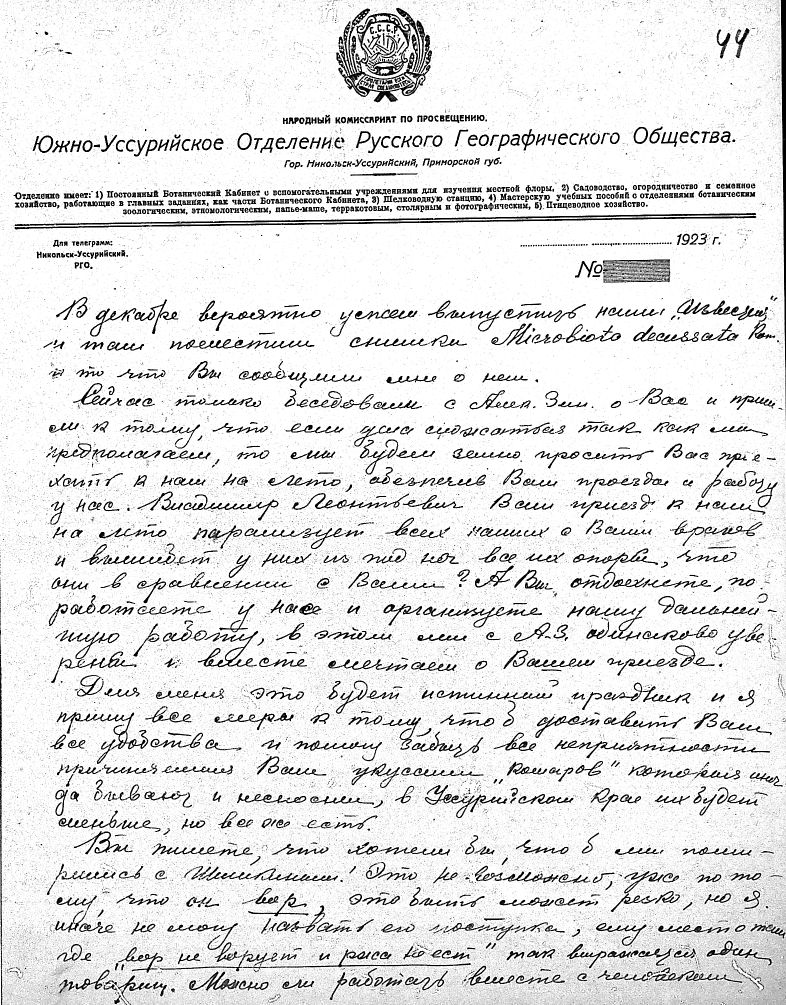 44
С.С.С.Р.
НАРОДНЫЙ КОМИССАРИАТ ПО ПРОСВЕЩЕНИЮ.
Южно-Уссурийское Отделение Русского Географического Общества.
Гор. Никольск-Уссурийский, Приморской губ.
Отделение имеет: 1) Постоянный Ботанический Кабинет с вспомогательными учреждениями для изучения местной флоры, 2) Садоводство, огородничество и семенное
хозяйство, работающие в главных заданиях, как части Ботанического Кабинета, 3) Шелководную станцию, 4) Мастерскую учебных пособий с отделениями ботаническим
зоологическим, этномологическим, папье-маше, терракотовым, столярным и фотографическим, 5) Птицеводное хозяйство.
Для телеграмм:
Никольск-Уссурийский.
РГО.
1923 г.
№
В декабре вероятно успеем выпустить наши „Известия"
и там поместим снимки Microbiota decussata Kom.
и то что Вы сообщили мне о нем.
Сейчас только беседовали с Алек. Зин. о Вас и приш-
ли к тому, что если усложнятся так как мы
предполагаем, то мы будем земно просить Вас прие-
хать к нам на лето, обезпечив Вам проезд и работу
у нас. Владимир Леонтьевич Ваш приезд к нам
на лето парализует всех наших с Вами врагов
и вышибет у них из под ног все их опоры, что
они в сравнении с Вами? А Вы отдохнете, по-
работаете у нас и организуете нашу дальней-
шую работу, в этом мы с А.З. одинаково уве-
рены и вместе мечтаем о Вашем приезде.
Для меня это будет истинный праздник и я
приму все меры к тому, что б доставить Вам
все удобства и помогу забыть все неприятности
причиненные Вам укусами „комаров" которые иног-
да бывают и несносны, в Уссурийском крае их будет
меньше, но все же есть.
Вы пишете, что хотели бы, что б мы поми-
рились с! Это не возможно, уже по то-
му что он вор, это быть может резко, но я
иначе не могу назвать его поступка, ему место там
где „вор не ворует и риса не ест" так выражался один
товарищ. Можно ли работать вместе с человеком